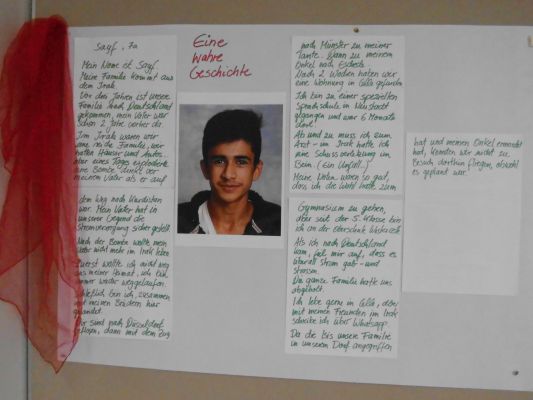 Sayf, 7a
Mein Name ist Sayf.
Meine Familie kommt aus
dem Irak.
Vor drei Jahren ist unsere
Familie nach Deutschland
gekommen, mein Vater war
schon 2 Jahre vorher da.
Im Irak waren wir
eine reiche Familie, wir
hatten Häuser und Autos
aber eines Tages explodierte
eine Bombe direkt vor
meinem Vater als er auf
dem Weg nach Kurdistan
war. Mein Vater hat in
unserer Gegend die
Stromversorgung sicher gestellt.
Nach der Bombe wollte mein
Vater nicht mehr im Irak leben
Zuerst wollte ich nicht weg
aus meiner Heimat, ich bin
immer wieder weggelaufen.
Schließlich bin ich zusammen
mit meinen Brüdern hier
gelandet.
Wir sind nach Düsseldorf
geflogen, dann mit dem Zug
Eine
wahre
Geschichte
nach Münster zu meiner
Tante. Dann zu meinem
Onkel nach
Nach 2 Wochen haben wir
eine Wohnung in gefunden
Ich bin zu einer speziellen
Sprachschule in Neustadt
gegangen und war 6 Monate
dort.
Ab und zu muss ich zum
Arzt - im Irak hatte ich
eine Schussverletzung im
Bein (Ein Unfall.)
Meine Noten waren so gut,
dass ich die Wahl hatte zum
Gymnasium zu gehen,
aber seit der 5. Klasse bin
ich an der Oberschule
Als ich nach Deutschland
kam, fiel mir auf, dass es
überall Strom gab - und
Strassen.
Die ganze Familie hatte uns
abgeholt.
Ich lebe gern in aber
mit meinen Freunden im Irak
schreibe ich über Whatsapp.
Da die Isis unsere Familie
in unserem Dorf angegriffen
hat und meinen Onkel ermordet
hat, konnten wir nicht zu
Besuch dorthin fliegen, obwohl
es geplant war.